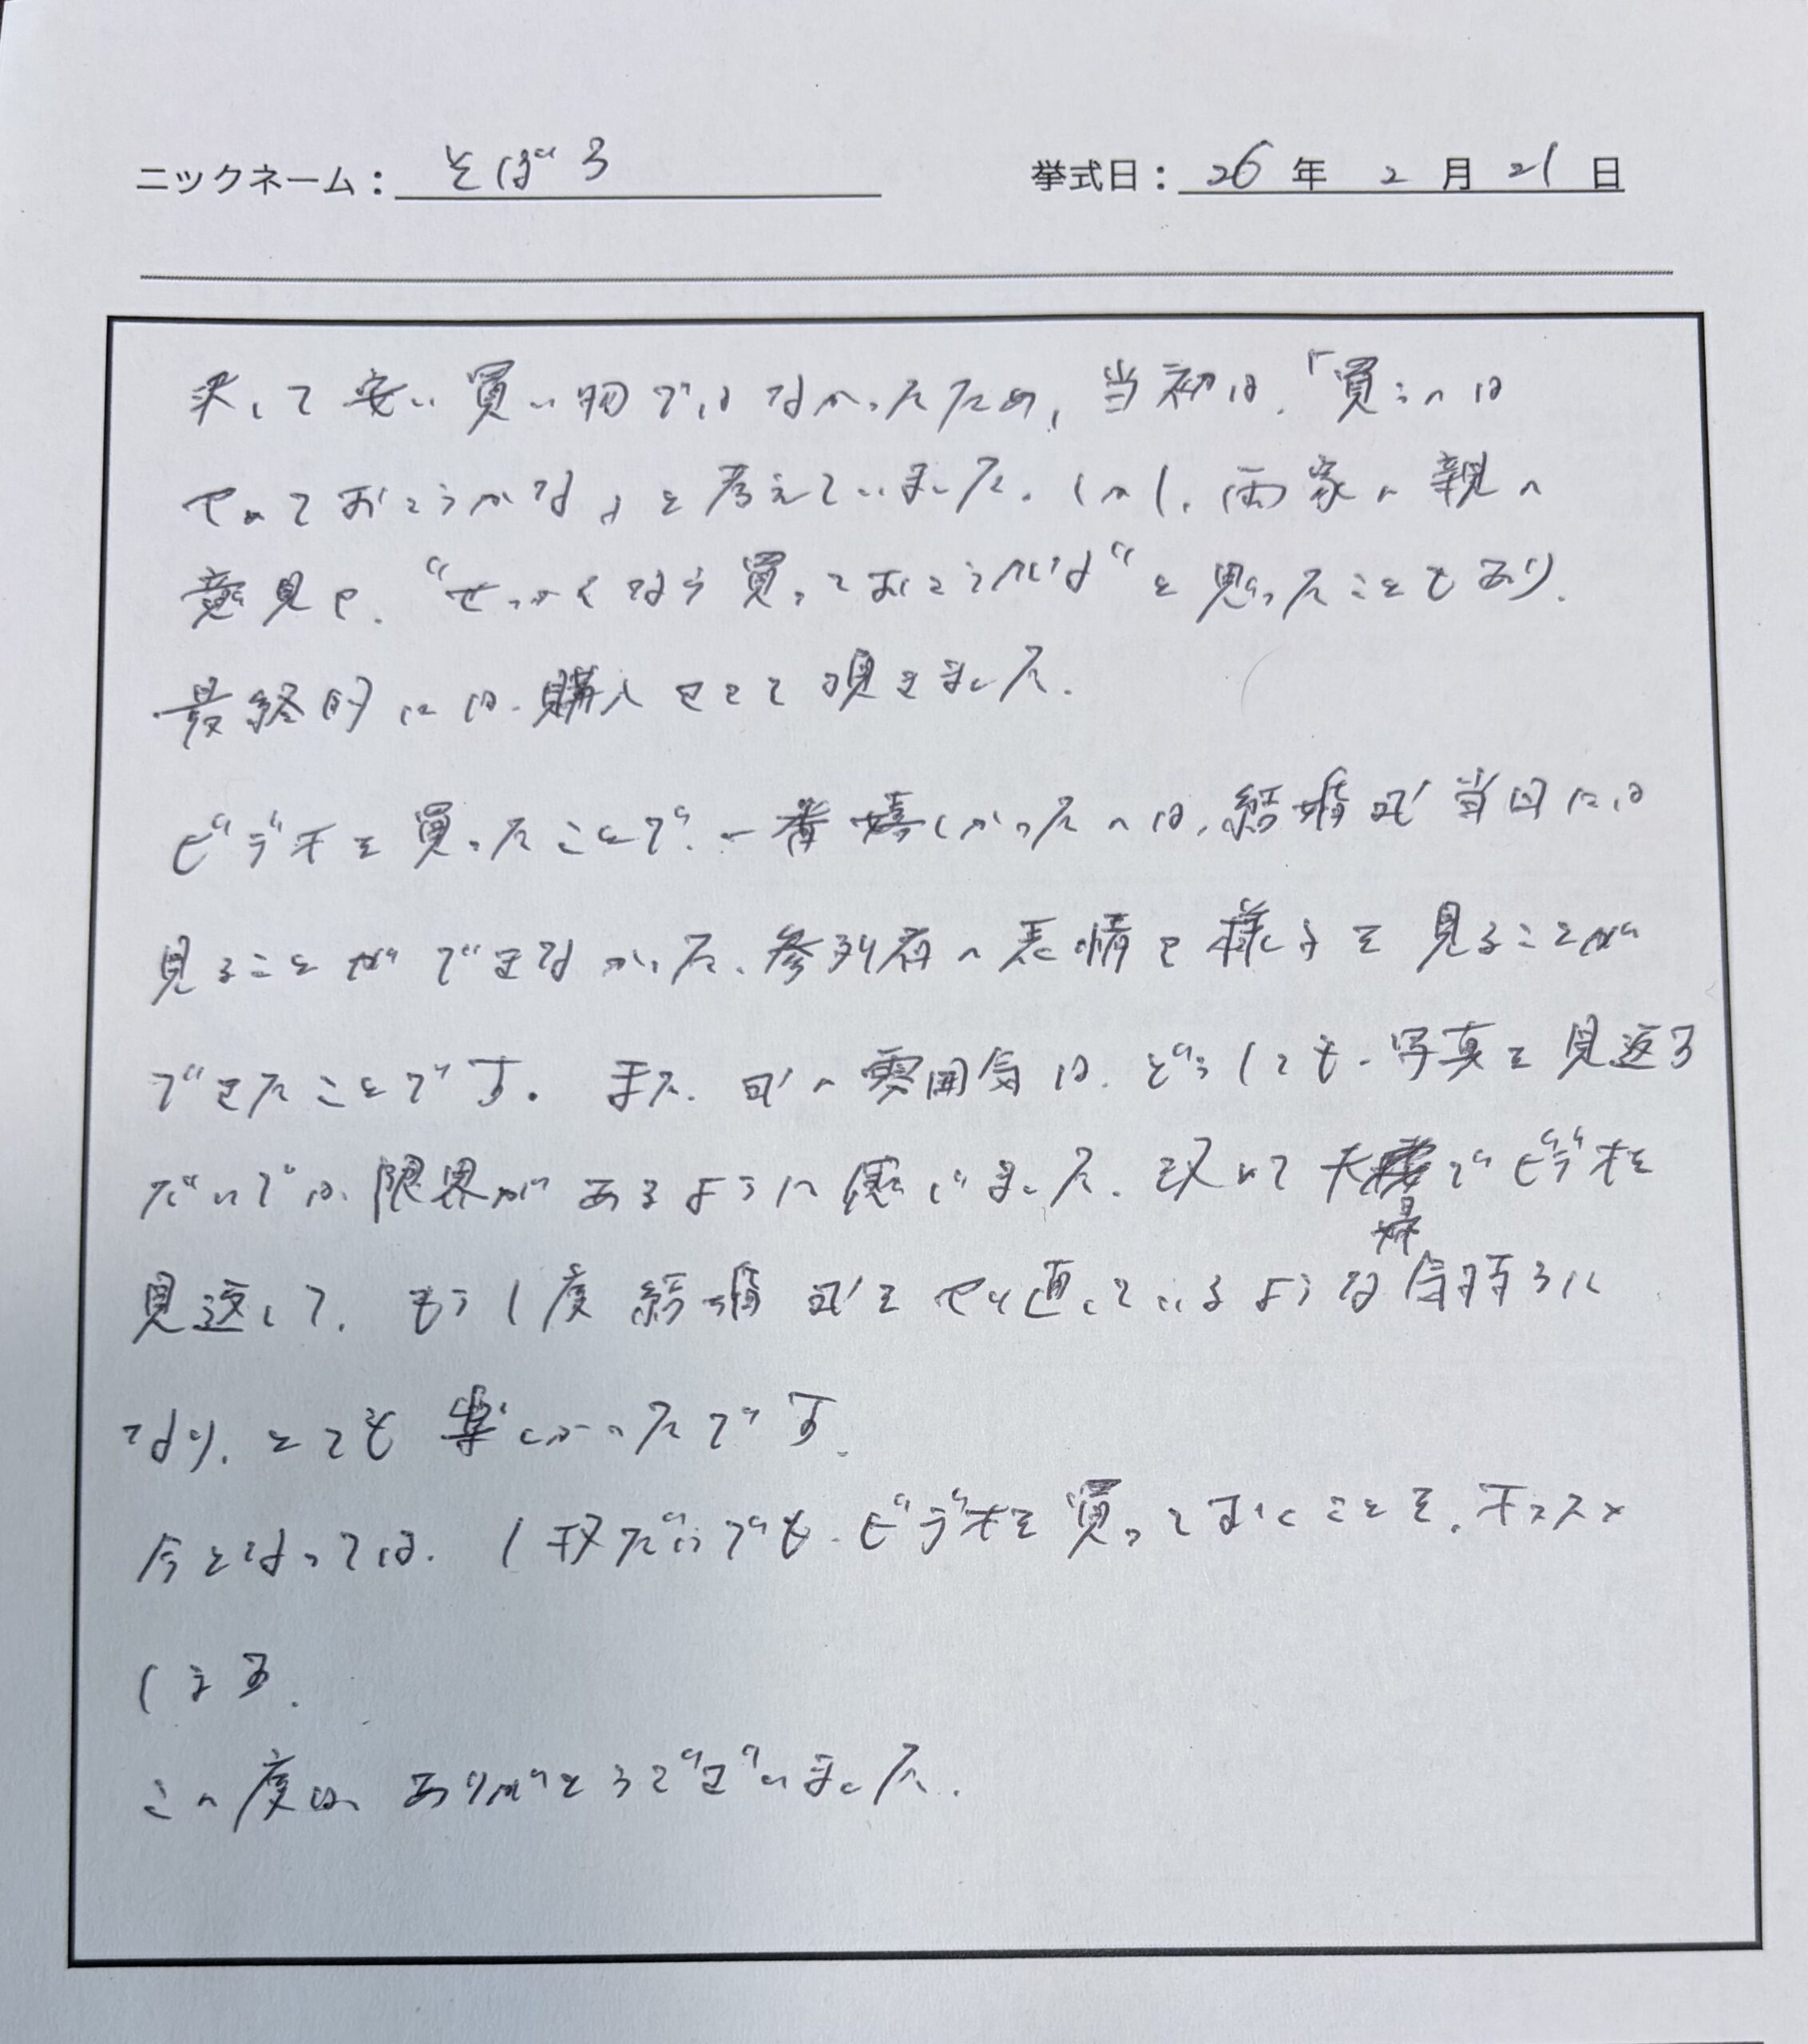 ニックネーム：そぼろ 挙式日：26年 2月 21日
決して安い買い物ではなかったため、当初は、「買うのは
やめておこうかな」と考えていました。しかし、両家の親の
意見や、“せっかくなら買っておこうかな”と思ったこともあり、
最終的には、購入させて頂きました。
ビデオを買ったことで、一番嬉しかったのは、結婚式当日には
見ることができなかった、参列者の表情や様子を見ることが
できたことです。また、式の雰囲気は、どうしても、写真を見返す
だけでは、限界があるように感じました。改めて夫婦でビデオを
見返して、もう1度結婚式をやり直しているような気持ちに
なり、とても楽しかったです。
今となっては、1枚だけでも、ビデオを買っておくことを、オススメ
します。
この度は、ありがとうございました。